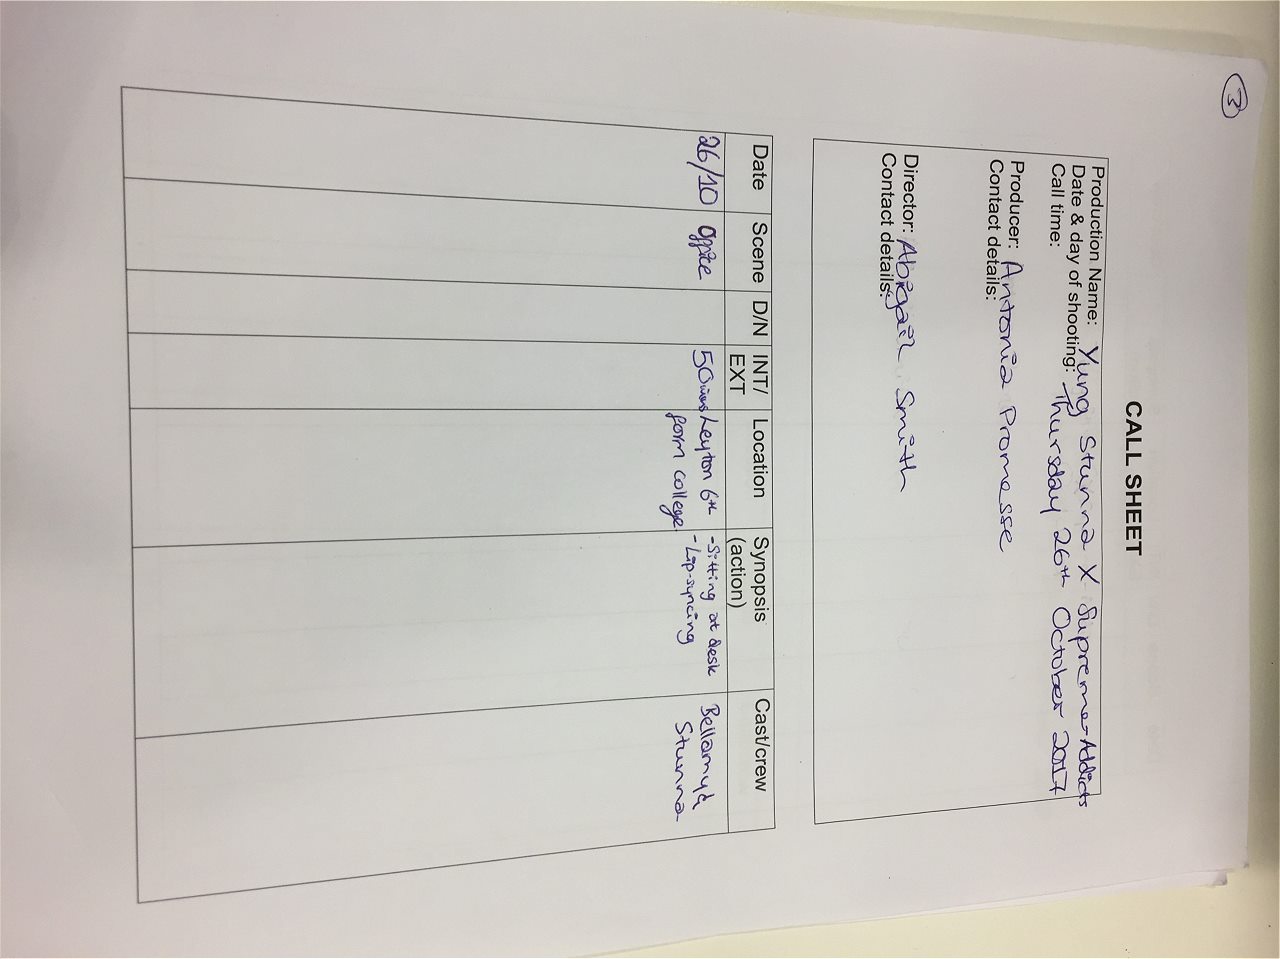 3
CALL SHEET
Production Name: Yung Stunna X Supreme-Addicts
Date & day of shooting: Thursday 26th October 2017
Call time:
Producer: Antonia Promesse
Contact details:
Director: Abigail Smith
Contact details:
Date Scene D/N INT/ EXT Location Synopsis (action) Cast/crew
26/10 Office 50mins Leyton 6th - Sitting at desk Bellamy &
form college - Lip-syncing Stunna